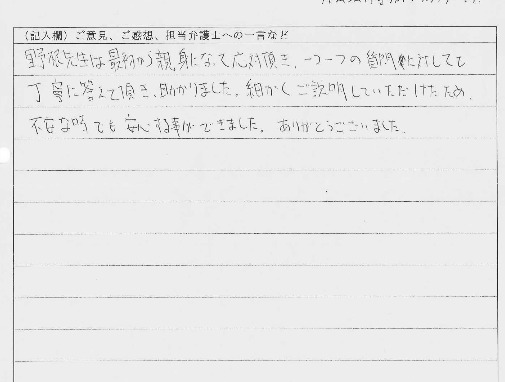 （記入欄）ご意見、ご感想、担当弁護士への一言など
野根先生は最初から親身になって応対頂き、一つ一つの質問に対しても
丁寧に答えて頂き、助かりました。細かくご説明していただけたため、
不安な時でも安心する事ができました。ありがとうございました。